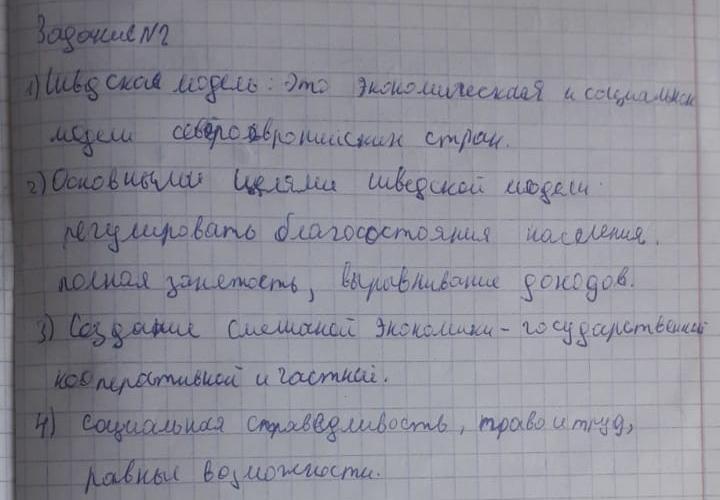 Задание N2
1) Шведская модель: Это экономическая и социальн
модели североевропейских стран.
2) Основными целями шведской модели:
регулировать благосостояния населения,
полная занятость, выравнивание доходов.
3) Создание смешаной экономики - государственной
кооперативной и частной.
4) социальная справедливость, право и труд,
равные возможности.